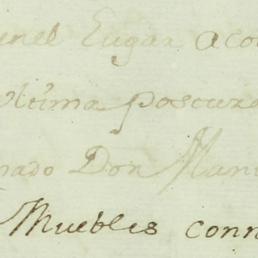 en el Lugar aco
ultima postura
nado Don Man
Muebles conn